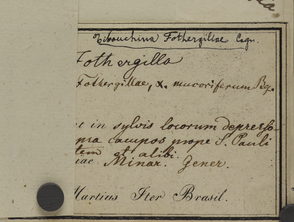 Tibouchina Fothergillae Cogn.
Fothergilla
Fothergillae, & mucoriferum Bp.
in sylvis locorum depresso
campos prope S. Pauli
et alibi.
Minar. Gener.
Martius Iter Brasil.